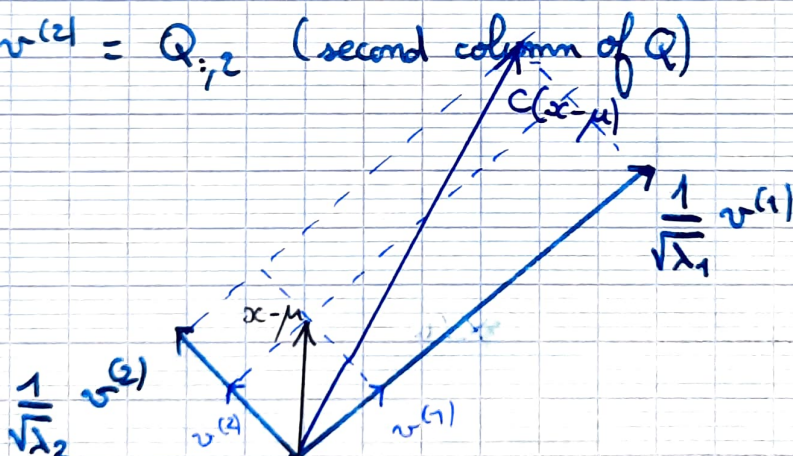 v⁽²⁾ = Q:,2 (second column of Q)
C(x-μ)
1/√λ₁ v⁽¹⁾
x-μ
1/√λ₂ v⁽²⁾
v⁽²⁾ v⁽¹⁾